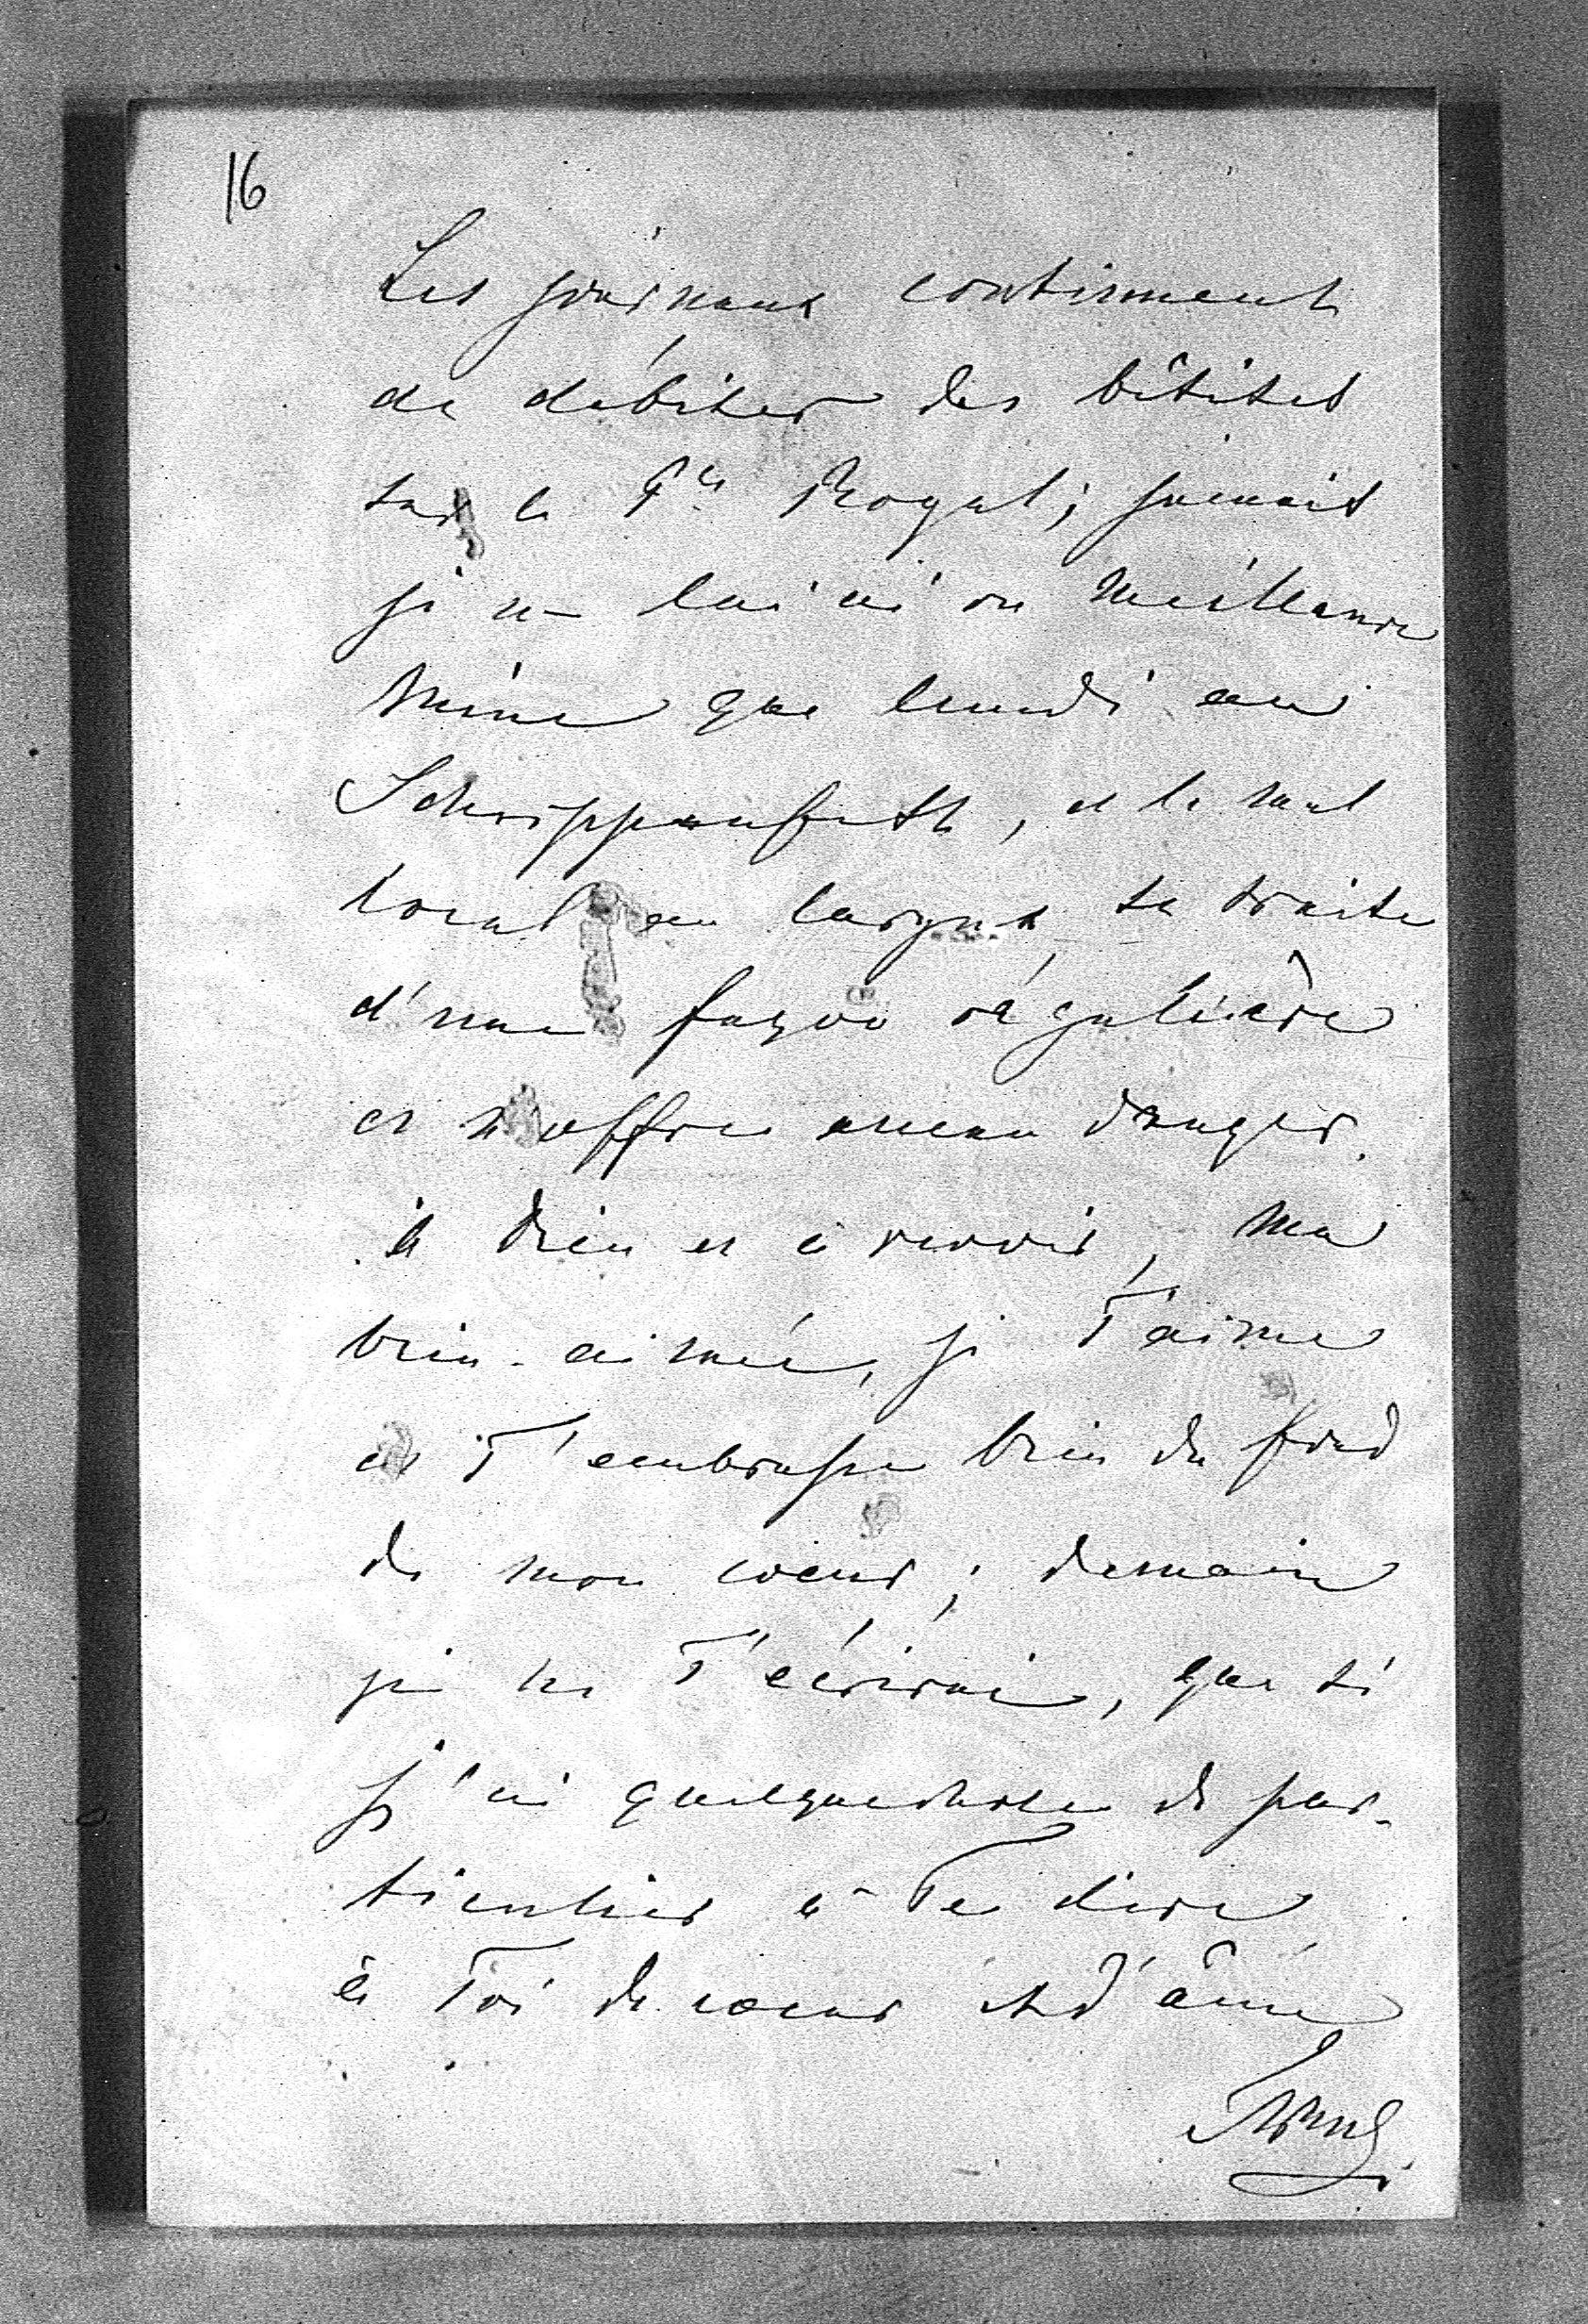 16
Les journaux continuent
de débiter des bêtises
sur le Pce Royal; jamais
je ne lui ai vu meilleure
mine que lundi au
Schrippenfest, et le mal
local au larynx, se traite
d'une façon régulière
et n'offre aucun danger.
à Dieu et à revoir, ma
bien-aimée, je T'aime
et T'embrasse bien du fond
de mon coeur; demain
je ne T'écrirai, que si
j'ai quelquechose de par-
ticulier à Te dire
à Toi de coeur et d'âme